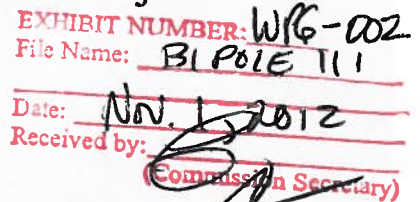 EXHIBIT NUMBER: WPG-002
File Name: BIPOLE III
Date: Nov. 1, 2012
Received by:
(Commission Secretary)